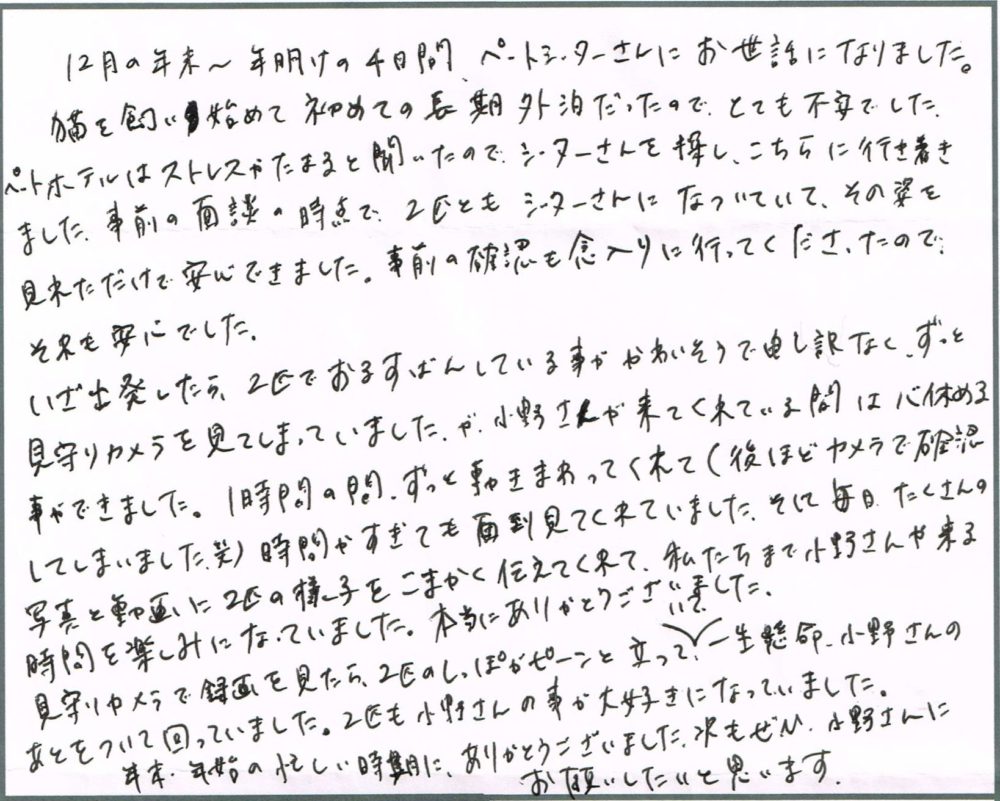 12月の年末～年明けの4日間、ペットシッターさんにお世話になりました。
猫を飼い始めて初めての長期外泊だったので、とても不安でした。
ペットホテルはストレスがたまると聞いたので、シッターさんを探し、こちらに行き着き
ました。事前の面談の時点で、2匹ともシッターさんになついていて、その姿を
見れただけで安心できました。事前の確認も念入りに行ってくださったので、
それも安心でした。
いざ出発したら、2匹でおるすばんしている事がかわいそうで申し訳なく、ずっと
見守りカメラを見てしまっていました、が、小野さんが来てくれている間は心休める
事ができました。1時間の間、ずっと動きまわってくれて(後ほどカメラで確認
してしまいました、笑)時間がすぎても面倒見てくれていました、そして毎日、たくさんの
写真と動画に2匹の様子をこまかく伝えてくれて、私たちまで小野さんが来る
時間を楽しみになっていました。本当にありがとうございました。
見守りカメラで録画を見たら、2匹のしっぽがピーンと立っていて、一生懸命、小野さんの
あとをついて回っていました。2匹も小野さんの事が大好きになっていました。
年末・年始の忙しい時期に、ありがとうございました、次もぜひ、小野さんに
お願いしたいと思います。